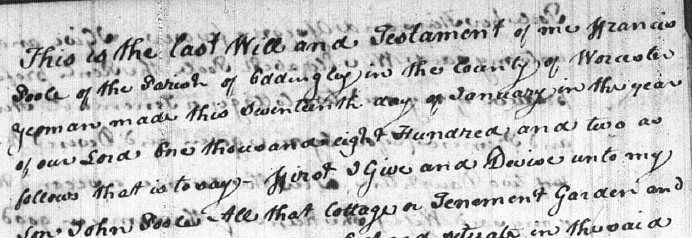 This is the last Will and Testament of me Francis
Poole of the Parish of Oddingley in the County of Worcester
Yeoman made this day of January in the year
of our Lord One thousand eight Hundred and two as
follows that is to say - First I Give and Devise unto my
Son John Poole All that Cottage or Tenement Garden and
situate in the said